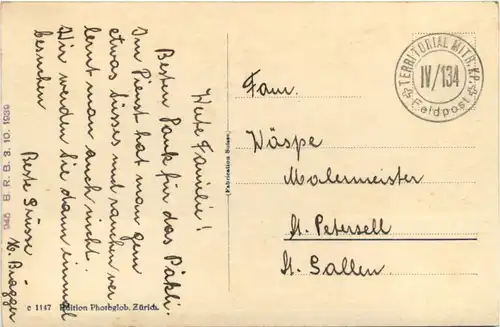 Werte Familie!
Besten Dank für das Päkli.
Im Dienst hat man gern
etwas süsses und rauchen ver
lernt man auch nicht.
Wir werden Sie dann einmal
besuchen
Beste Grüsse
Bruggen
TERRITORIAL MITR: KP.
IV/134
Feldpost
Fam.
Wäspe
Malermeister
St. Petersell
St. Gallen
(Fabrication Suisse)
B. R. B. 3. 10. 1939
c 1147 Edition Photoglob. Zürich.